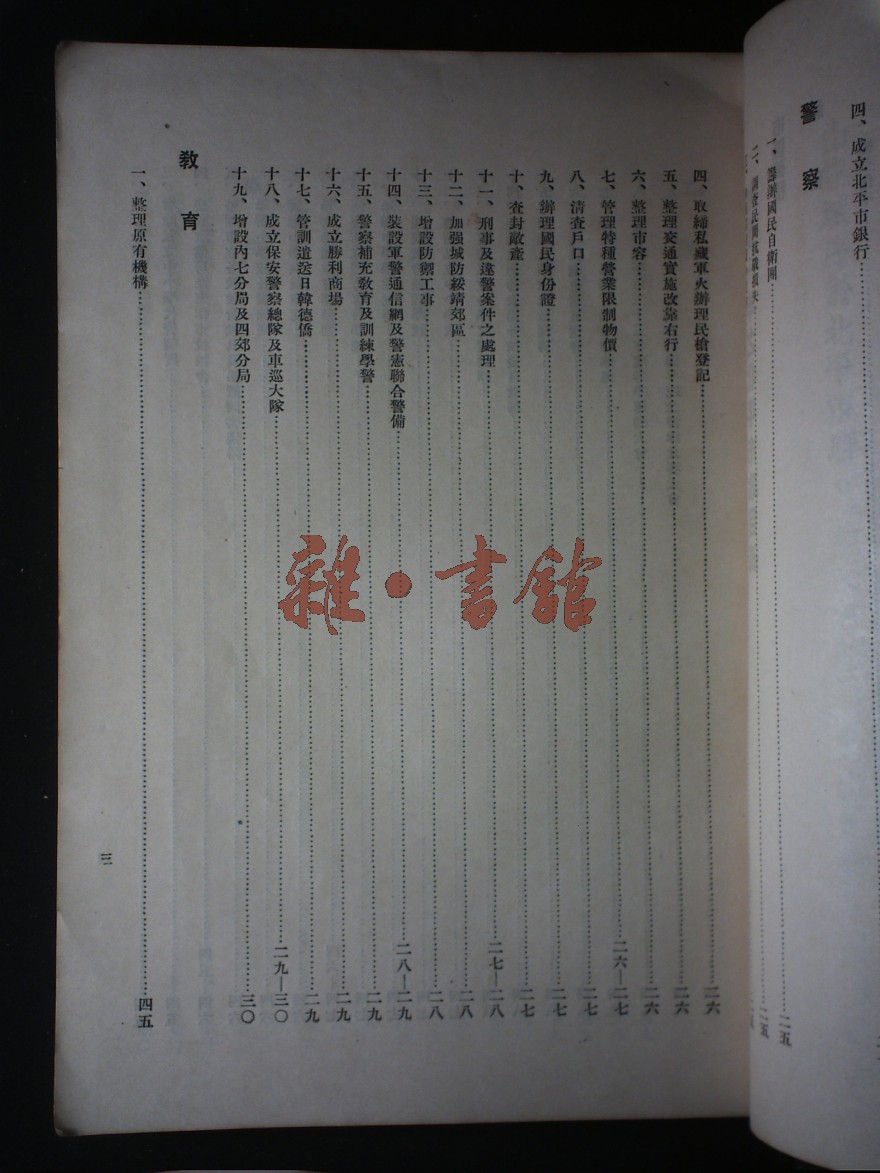 四、成立北平市銀行
警察
一、籌辦國民自衛團 二五
二、調查民間抗戰損失 二五
四、取締私藏軍火辦理民槍登記 二六
五、整理交通實施改靠右行 二六
六、整理市容 二六
七、管理特種營業限制物價 二六—二七
八、清查戶口 二七
九、辦理國民身份證 二七
十、查封敵產 二七
十一、刑事及違警案件之處理 二七—二八
十二、加强城防綏靖郊區 二八
十三、增設防禦工事 二八
十四、裝設軍警通信網及警憲聯合警備 二八—二九
十五、警察補充教育及訓練學警 二九
十六、成立勝利商場 二九
十七、管訓遣送日韓德僑 二九
十八、成立保安警察總隊及車巡大隊 二九—三〇
十九、增設內七分局及四郊分局 三〇
教育
一、整理原有機構 四五
三
雜·書館